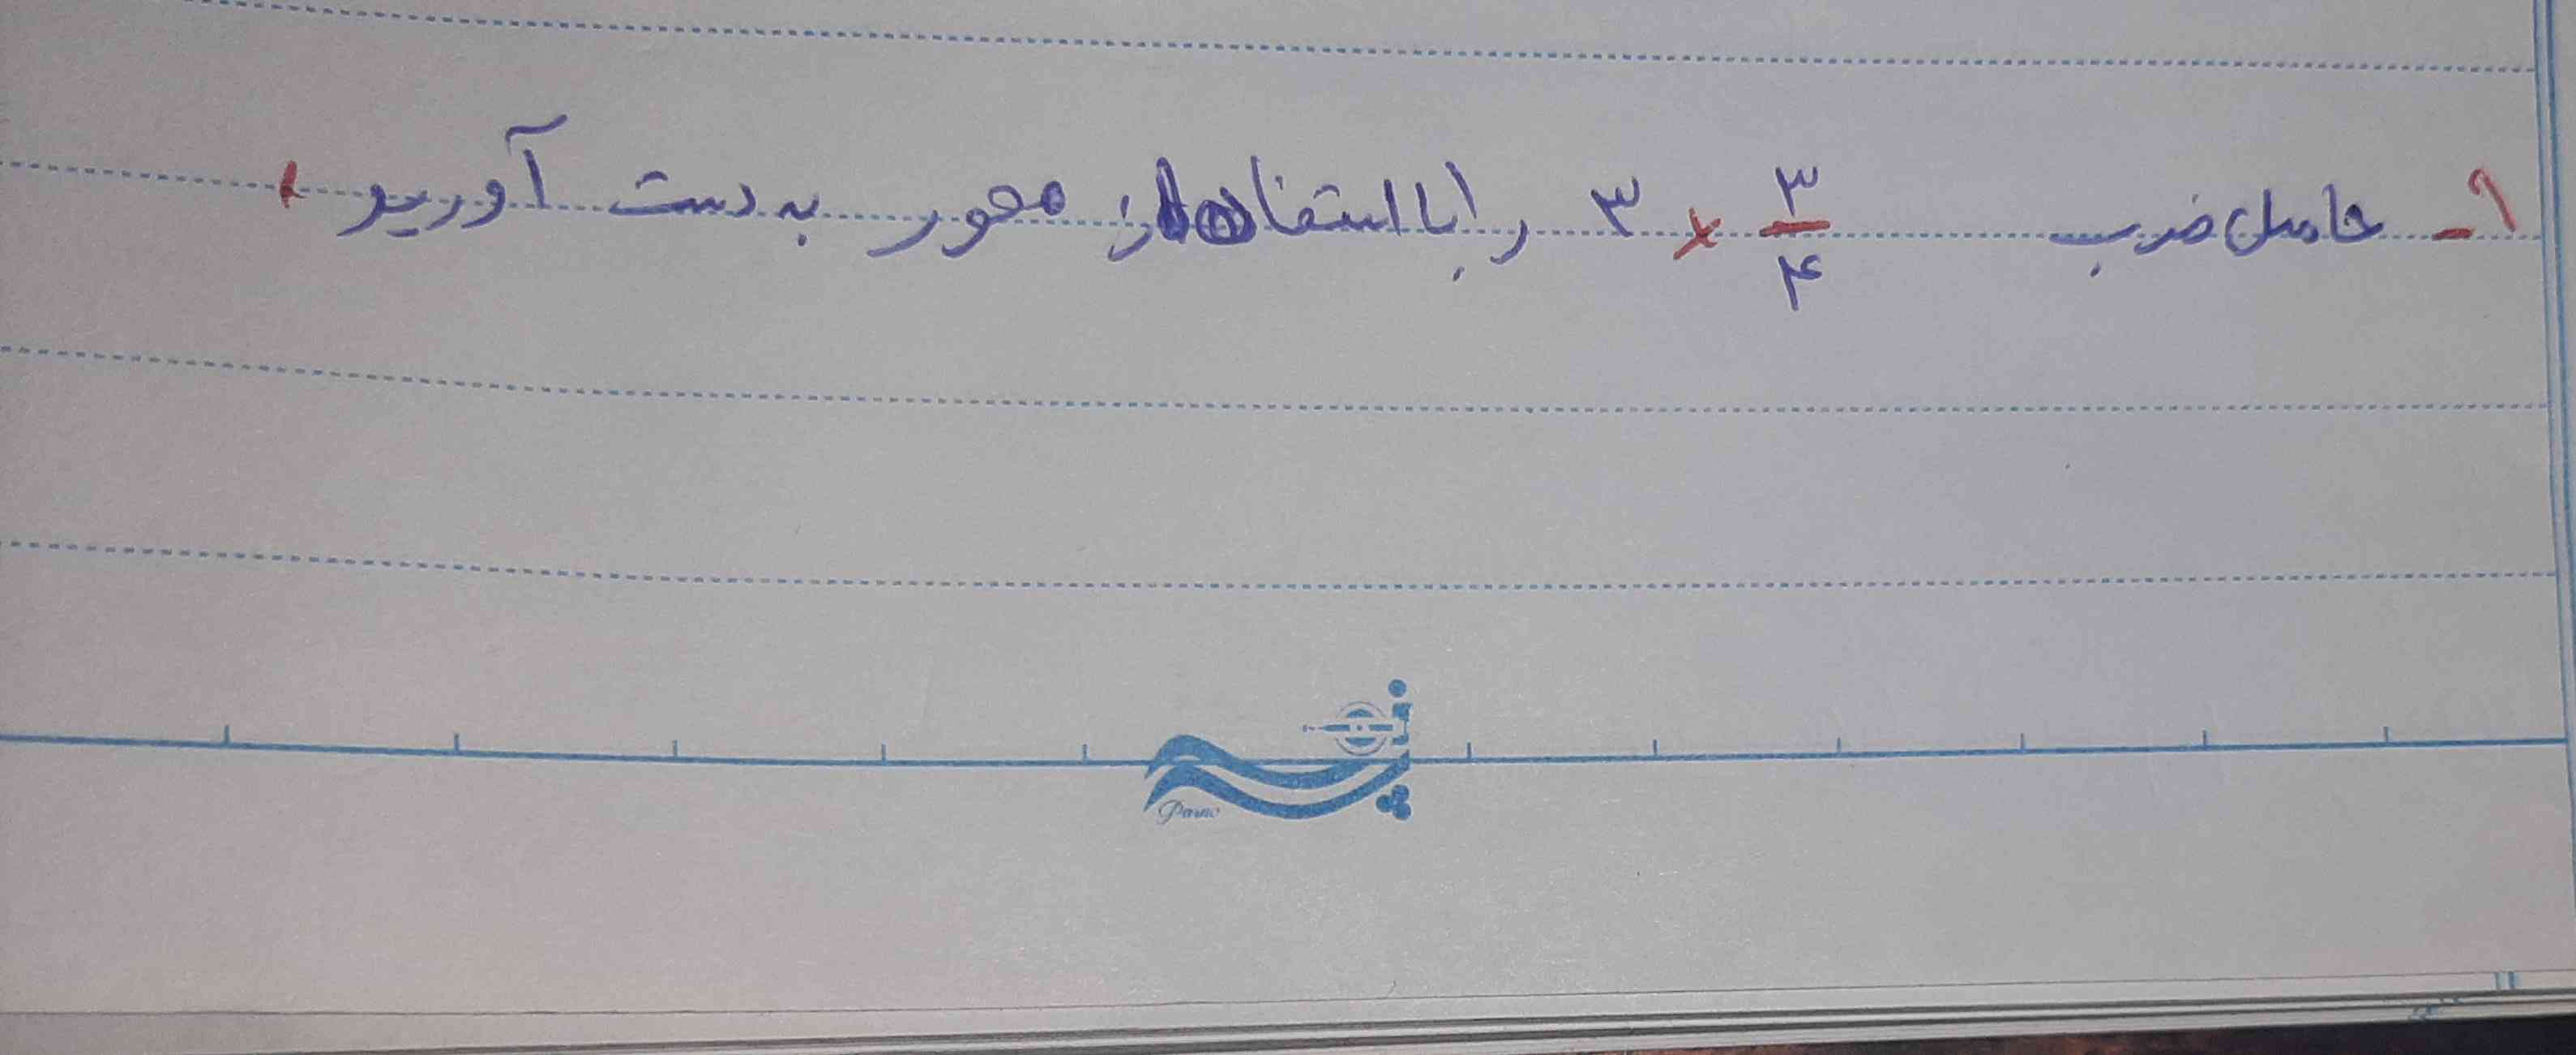 ۹- حاصل ضرب ۳/۴ × ۳ را با استفاده از محور به دست آورید ۱
Parno